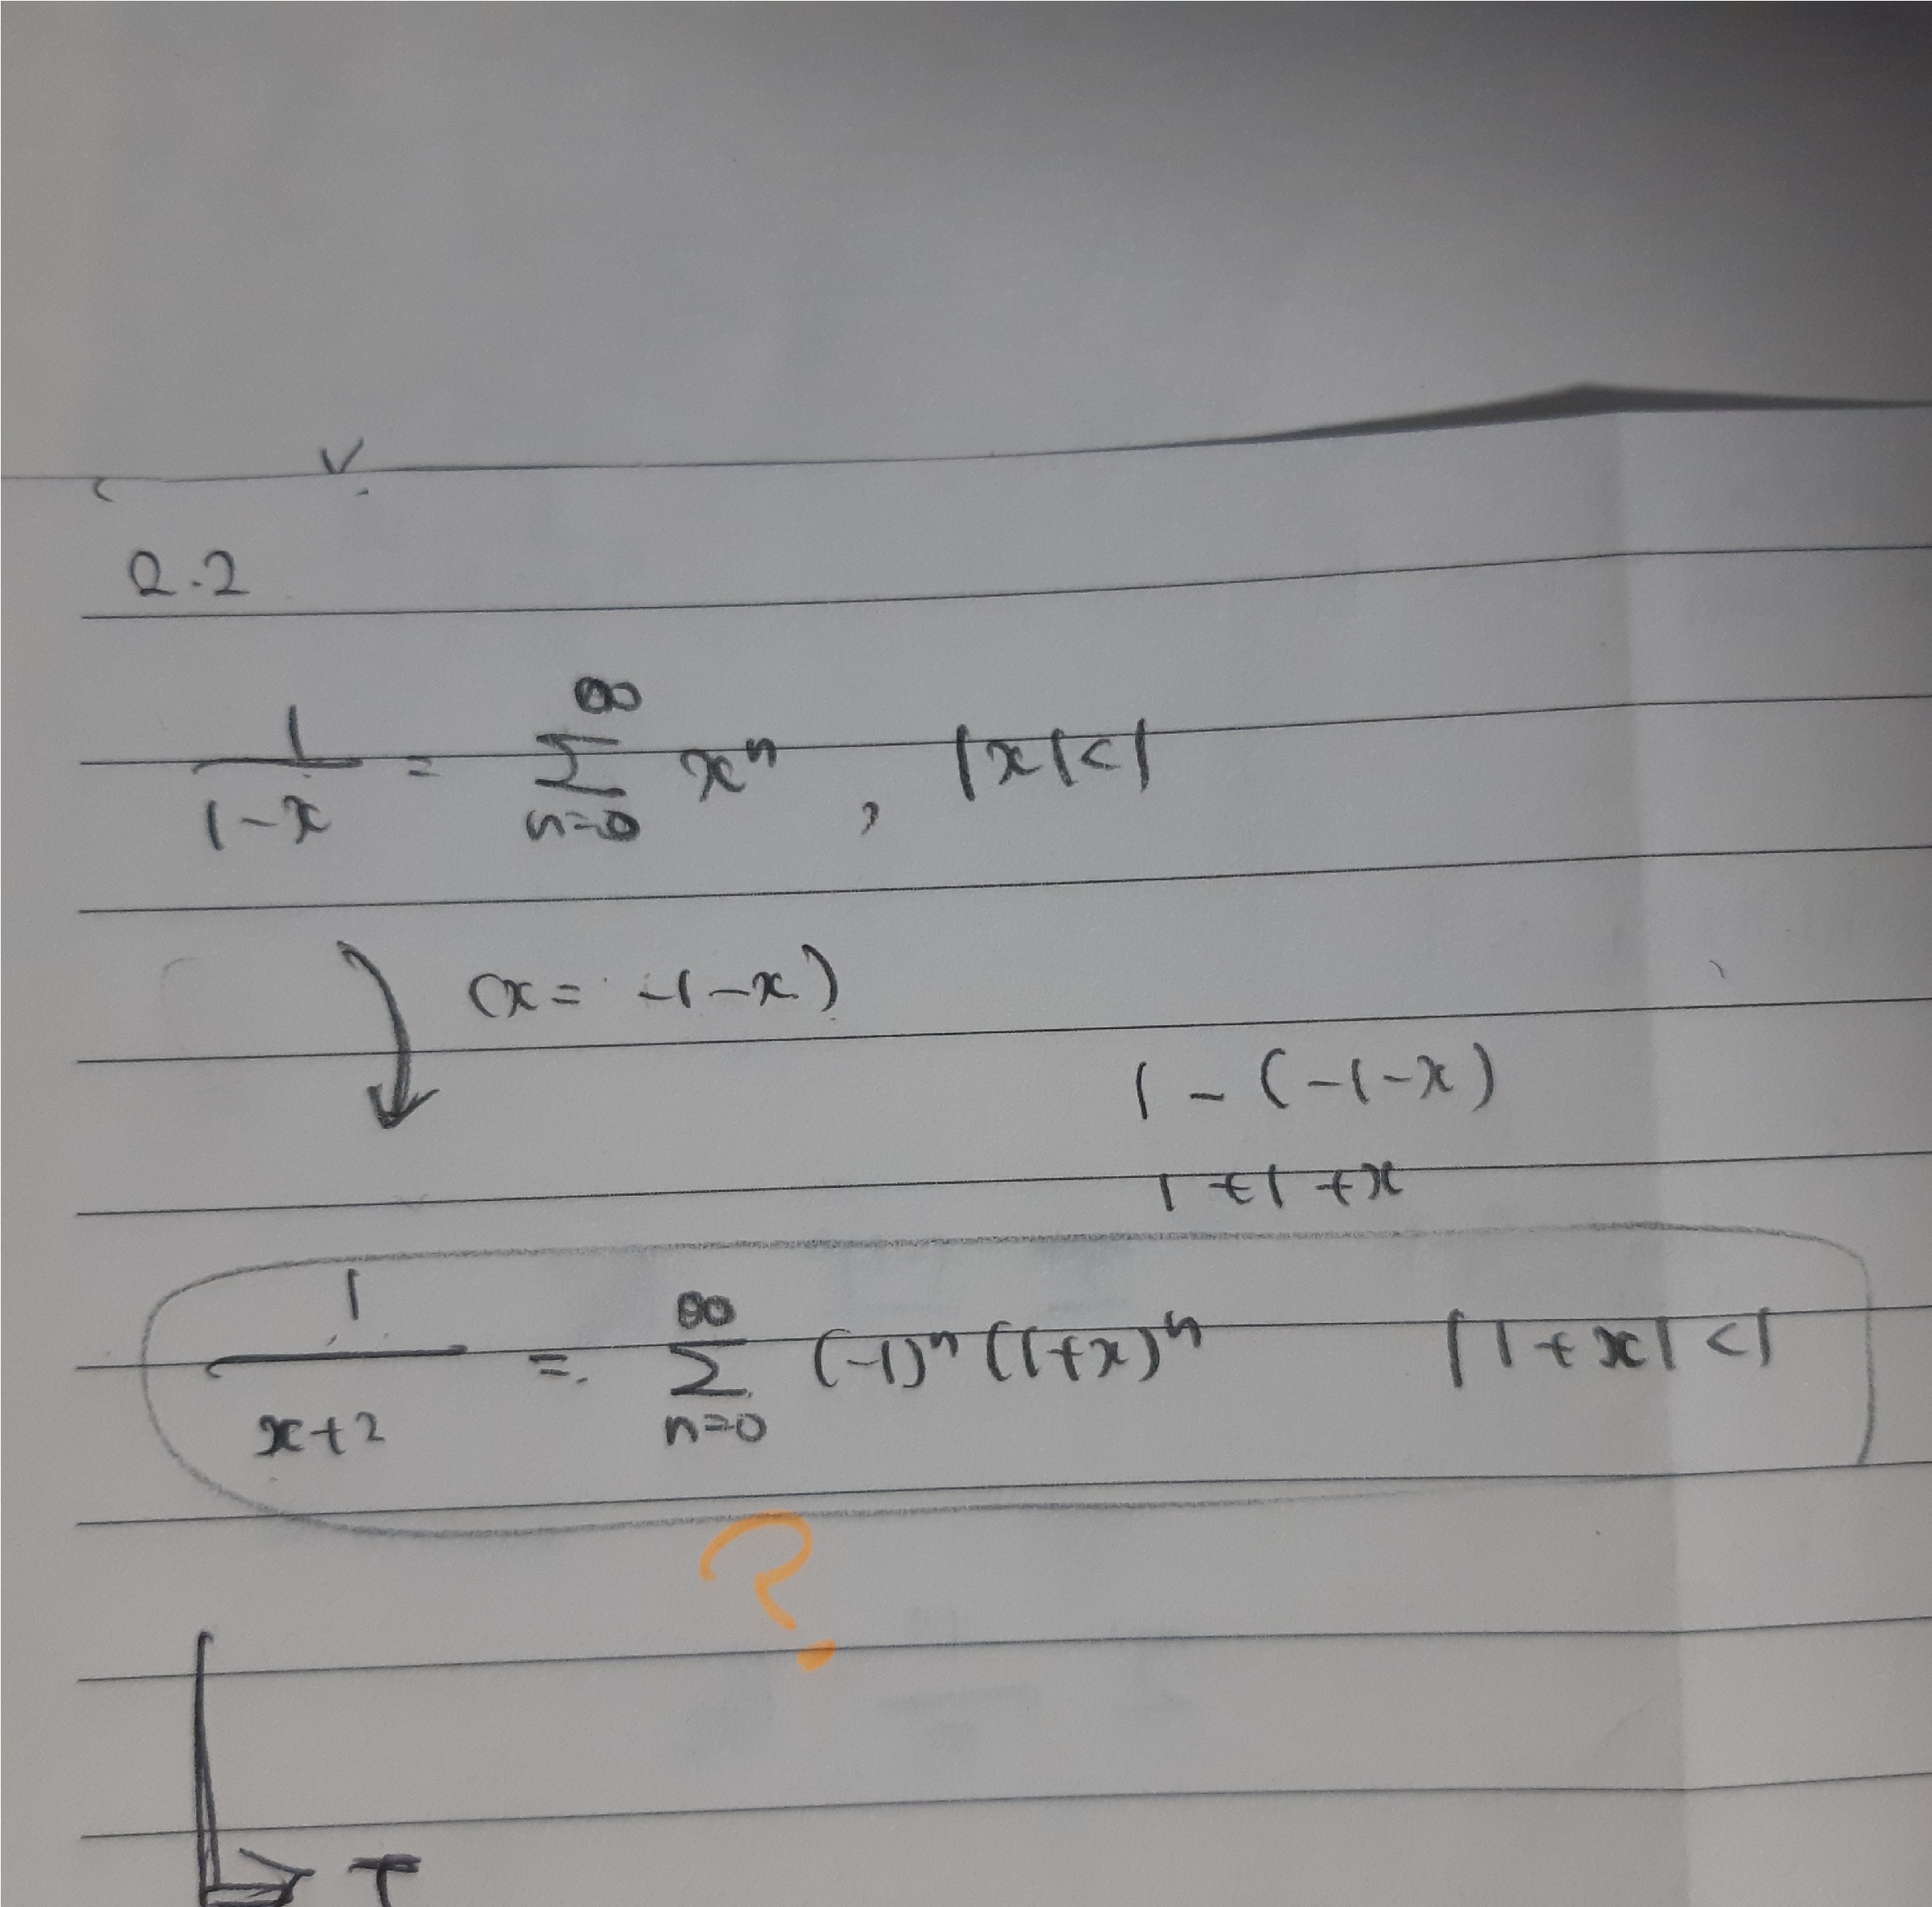 2.2
1/(1-x) = ∞Σn=0 xⁿ , |x|<1
(x= -1-x)
1-(-1-x)
1+1+x
1/(x+2) = ∞Σn=0 (-1)ⁿ(1+x)ⁿ |1+x|<1
?